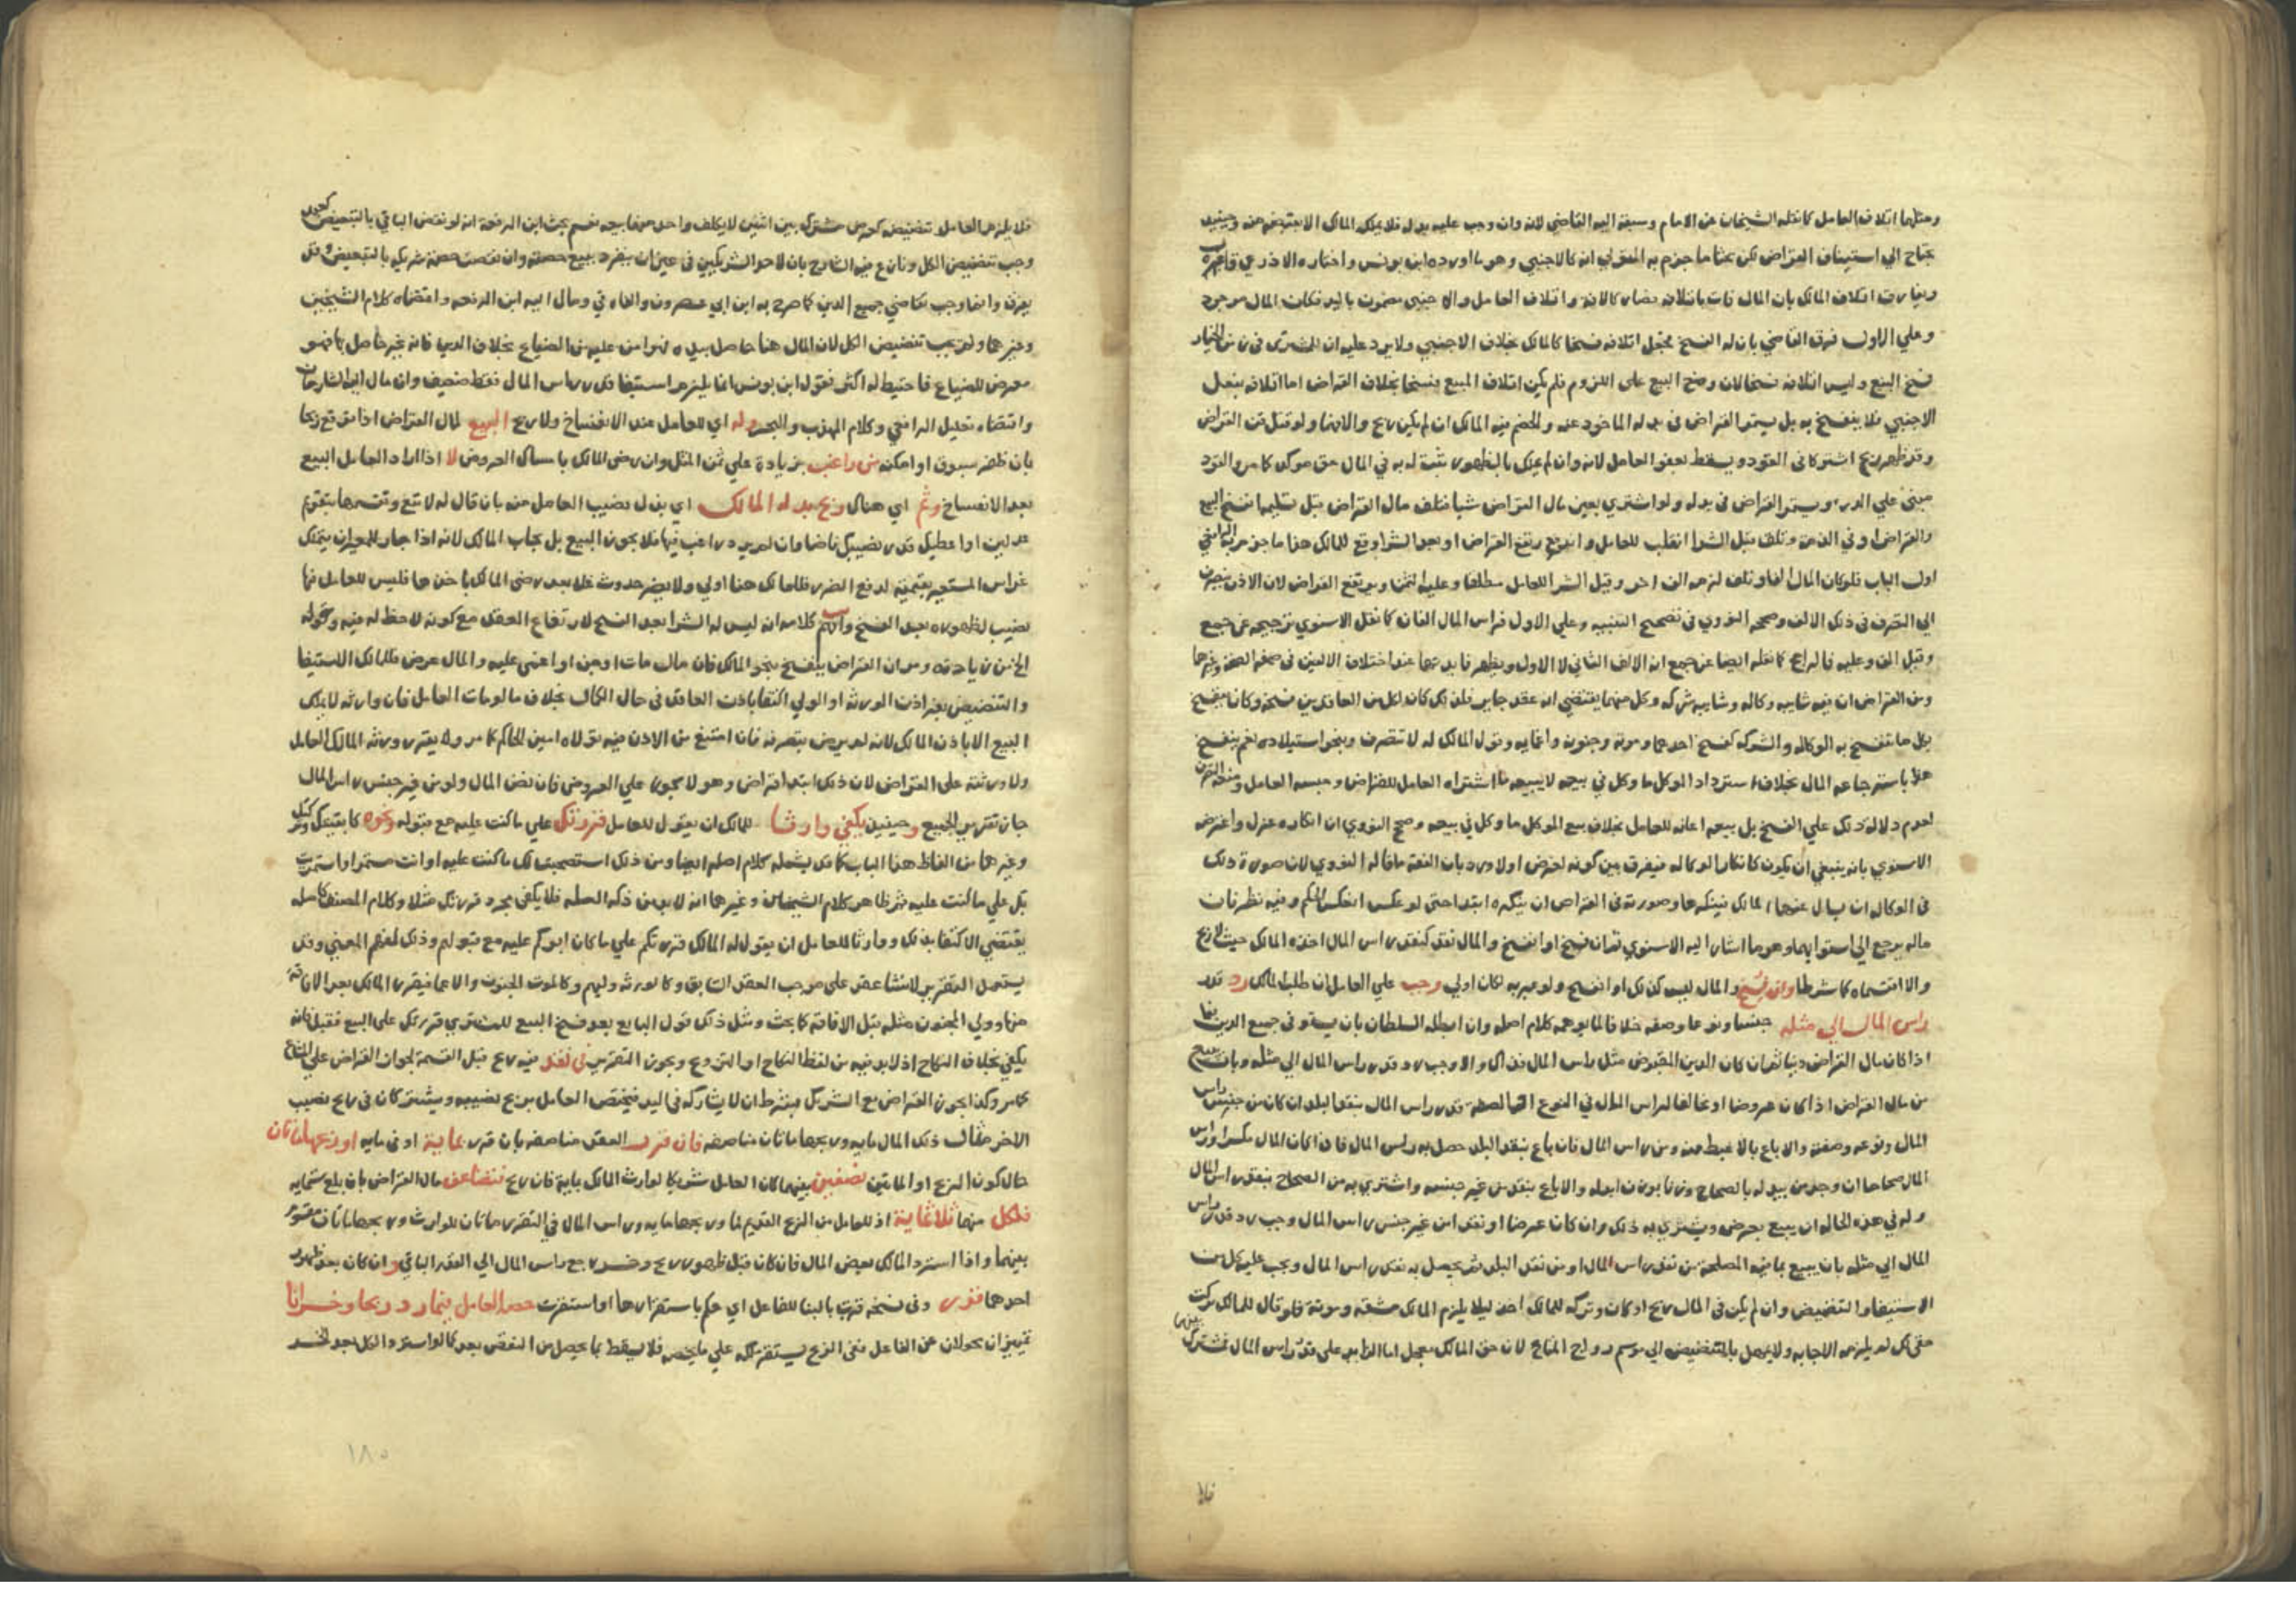 ومثلها اتلاف العامل كما نقله الشيخان عن الامام وسبقه اليه القاضي لانه وان وجب عليه بدله فلا يملكه المالك الا بقبضه منه وحينئذ
يحتاج الي استيناف القراض لكن بحثا ما جزم به المتولي انه كالاجنبي وهو ما اورده ابن يونس واختاره الاذرعي
ويفارق اتلاف المالك بان المال فات باتلافه فصار كالافة واتلاف العامل والاجنبي مضمون بالبدل فكان المال موجود
وعلي الاول فرق القاضي بان له الفسخ فجعل اتلافه فسخا كالمالك بخلاف الاجنبي ولا يرد عليه ان للمشتري في زمن الخيار
فسخ البيع وليس اتلافه فسخا لان وضع البيع على اللزوم فلم يكن اتلاف المبيع فسخا بخلاف القراض اما اتلافه بفعل
الاجنبي فلا ينفسخ به بل يستمر القراض في بدله الماخوذ عنه والخصم فيه المالك ان لم يكن ربح والا فهما ولو قتل قن القراض
وقد ظهر ربح اشتركا في القود ويسقط بعفو العامل لانه وان لم يملك بالظهور ثبت له به في المال حق موكد كما مر والقود
مبني علي الدرء ويستمر القراض في بدله ولو اشتري بعين مال القراض شيا فتلف مال القراض قبل تسليمه انفسخ البيع
والقراض او في الذمة وتلف قبل الشرا انقلب للعامل وارتفع القراض او بعد الشرا وقع للمالك هذا ما جزم به الرافعي
اول الباب فلو كان المال الفا وتلف لزمه الف اخر وقيل الشرا للعامل مطلقا وعليه الثمن ويرتفع القراض لان الاذن ينصرف
الي التصرف في ذلك الالف وصححه النووي في تصحيح التنبيه وعلي الاول فراس المال الفان كما نقل الاسنوي ترجيحه عن جمع
وقيل الف وعليه فالراجح كما نقله ايضا عن جمع انه الالف الثاني لا الاول ويظهر فايدتها عند اختلاف الالفين في صفة الصحة وغيرها
ومن القراض ان فيه شايبه وكاله وشايبه شركه وكل منهما يقتضي انه عقد جايز فلذلك كان لكل من العاقدين فسخه وكان ينفسخ
بكل ما تنفسخ به الوكاله والشركه كفسخ احدهما وموته وجنونه واغمايه وقول المالك له لا تتصرف وبنحو استيلاده نعم ينفسخ
هذا باسترجاعه المال بخلاف استرداد الموكل ما وكل في بيعه لا ببيعه ما اشتراه العامل للقراض وحبسه العامل ومنعه التصرف
لعدم دلالة ذلك علي الفسخ بل بيعه اعانه للعامل بخلاف بيع الموكل ما وكل في بيعه وصحح النووي ان انكاره عزل واعترضه
الاسنوي بانه ينبغي ان يكون كانكار الوكاله فيفرق بين كونه لغرض او لا ورد بان الفقه ما قاله النووي لان صورة ذلك
في الوكاله ان يسال عنها المالك فينكرها وصورته في القراض ان ينكره ابتدا حتي لو عكس انعكس الحكم وفيه نظر فان
ماله يرجع الي استوايهما وهو ما اشار اليه الاسنوي ثم ان فسخ او انفسخ والمال نقد كنقد راس المال اخذه المالك حيث لا ربح
والا اقتسماه كما شرطا وان فسخ والمال ليس كذلك او انفسخ ولو عبر به لكان اولي وجب علي العامل ان طلب المالك رد قدر
راس المال الي مثله جنسا ونوعا وصفه خلافا لما يوهمه كلام اصله وان ابطله السلطان بان يستوفي جميع الدين
اذا كان مال القراض دينا ثم ان كان الدين المقبوض مثل راس المال فذاك والا وجب رد قدر راس المال الي مثله وبان يبيع
من مال القراض اذا كان عروضا او مخالفا لراس المال في النوع او الصفه قدر راس المال بنقد البلد ان كان من جنس راس
المال ونوعه وصفته والا باع بالاغبط منه ومن راس المال فان باع بنقد البلد حصل به راس المال فاذا كان المال مكسرا وراس
المال صحاحا ان وجد من يبدله بالصحاح وزنا بوزن ابدله والا باع بنقد من غير جنسه واشتري به من الصحاح بنقد راس المال
وله في هذه الحاله ان يبيع بعرض ويشتري به ذلك وان كان عرضا او نقدا من غير جنس راس المال وجب رد قدر راس
المال الي مثله بان يبيع بما فيه المصلحه من نقد راس المال او من نقد البلد ثم يحصل به نقد راس المال ويجب عليه كل من
الاستيفا والتنضيض وان لم يكن في المال ربح او كان وتركه للمالك اخذ ليلا يلزم المالك مشقه ومونة فلو قال للمالك تركت
حقي لك لم يلزمه الاجابه ولا يمهل بالتنضيض الي موسم رواج المتاع لان حق المالك معجل اما الزايد علي قدر راس المال فمشترك
فلا
فلا يلزم العامل تنضيضه كعرض مشترك بين اثنين لا يكلف واحد منهما بيعه نعم بحث ابن الرفعة انه لو نقص الباقي بالتبعيض
وجب تنضيض الكل ونازع فيه الشارح بان لاحد الشريكين في عين ان ينفرد ببيع حصته وان نقصت حصة شريكه بالتبعيض
يفرق وايضا وجب تقاضي جميع الدين كما صرح به ابن ابي عصرون والفارقي ومال اليه ابن الرفعه واقتضاه كلام الشيخين
وغيرهما ولم يجب تنضيض الكل لان المال هنا حاصل بيده فهو امن عليه من الضياع بخلاف الدين فانه غير حاصل بها فهو
معرض للضياع فاحتيط له اكثر فقول ابن يونس انما يلزمه استيفا قدر راس المال فقط ضعيف وان مال اليه الشارحان
واقتضاه تعليل الرافعي وكلام المهذب والبحر وله اي للعامل عند الانفساخ ولا ربح البيع لمال القراض اذا توقع ربحا
بان ظفر بسوق او امكنه من راغب بزيادة علي ثمن المثل وان رضي المالك بامساك العروض لا اذا اراد العامل البيع
بعد الانفساخ وثم اي هناك ربح بدله المالك اي بذل نصيب العامل منه بان قال له لا تبع وتقسمها بتقويم
عدلين او اعطيك قدر نصيبك ناضا وان لم يزد راغب فيها فلا يجوز البيع بل يجاب المالك لانه اذا جاز للمعير ان يتملك
غراس المستعير بقيمته لدفع الضرر فالمالك هنا اولي ولا يضر حدوث غلا بعد رضي المالك باخذها فليس للعامل فيها
نصيب لظهوره بعد الفسخ وافهم كلامه انه ليس له الشرا بعد الفسخ لارتفاع العقد مع كونه لا حظ له فيه
ومر ان القراض ينفسخ بنحو المالك فان مالك مات او جن او اغمي عليه والمال عرض فللمالك الاستيفا
والتنضيض بغير اذن الورثه او الولي اكتفا باذن العاقد في حال الكمال بخلاف ما لو مات العامل فان وارثه لا يملك
البيع الا باذن المالك لانه لم يرض بتصرفه فان امتنع من الاذن فيه تولاه امين الحاكم كما مر ولا يقرر ورثه المالك العامل
ولا ورثته على القراض لان ذلك ابتدا قراض وهو لا يجوز علي العروض فان نض المال ولو من غير جنس راس المال
جاز تقرير الجميع وحينئذ يكفي وارثا للمالك ان يقول للعامل قررتك علي ما كنت عليه مع قبوله ونحوه
وغيرهما من الفاظ هذا الباب كما قد يشمله كلام اصله ايضا ومن ذلك استصحبت لك ما كنت عليه او انت مستمر او استمررت
بك علي ما كنت عليه ثم ظاهر كلام الشيخان وغيرهما انه لا بد من ذكر الصله فلا يكفي مجرد قررتك مثلا وكلام المصنف كاصله
يقتضي الاكتفا بذلك ووارثا للعامل ان يقول له المالك قررتكم علي ما كان ابوكم عليه مع قبولهم وذلك لفهم المعني وقد
يستعمل التقرير لانشا عقد على موجب العقد السابق وكالورثه وليهم وكالموت الجنون والاغما فيقرر المالك بعد الافاقه
منها وولي المجنون مثله قبل الافاقه كما بحث ومثل ذلك قول البايع بعد فسخ البيع للمشتري قررتك على البيع فقبل فانه
يكفي بخلاف النكاح اذ لا بد فيه من لفظ النكاح او التزويج ويجوز التقرير في نقد فيه ربح قبل القسمة لجواز القراض علي المشاع
كما مر وكذا يجوز القراض مع الشريك بشرط ان لا يشاركه في اليد فيختص العامل بربح نصيبه ويشتركان في ربح نصيب
الاخر مثاله ذلك المال مايه وربحها ماتان مناصفه فان قرر العقد مناصفه بان قرر بماية او في مايه او ربحها ماتان
حال كون الربح او الماتين نصفين بينهما كان العامل شريكا لوارث المالك بماية فان ربح فتضاعف مال القراض بان بلغ ستمايه
فلكل منهما ثلاثماية اذ للعامل من الربح القديم لما وربحها مايه وراس المال في التقرير ماتان للوارث وربحها ماتان مقسوم
بينهما واذا استرد المالك بعض المال فان كان قبل ظهور ربح وخسر رجع راس المال الي القدر الباقي وان كان بعد ظهور
احدهما قرر وفي نسخه قررت بالبنا للفاعل اي حكم باستقرارها او استقرت حصة العامل فيما رد ربحا وخسرانا
تمييزان محولان عن الفاعل ففي الربح يستقر ملكه علي ما يخصه فلا يسقط بما يحصل من النقص بعد كما لو استرد الكل بعد الخسر
١٨٠